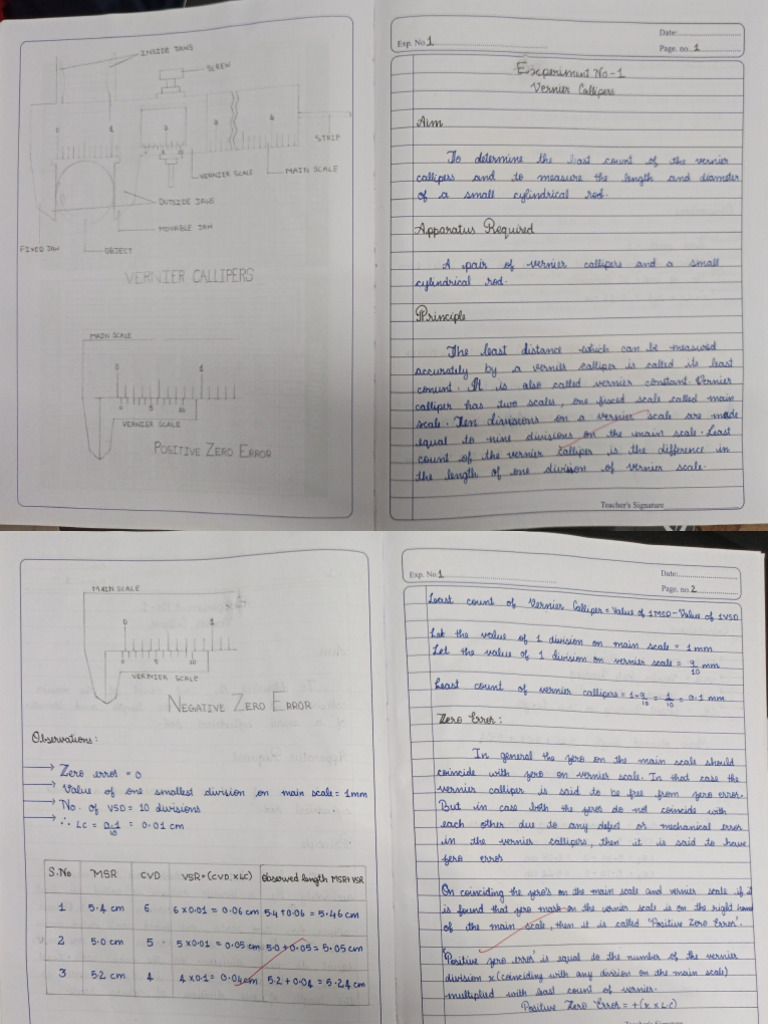 INSIDE JAWS
SCREW
0 1 2 3 4
STRIP
VERNIER SCALE
MAIN SCALE
OUTSIDE JAWS
MOVABLE JAW
FIXED JAW
OBJECT
VERNIER CALLIPERS
MAIN SCALE
0 1
0 5 10
VERNIER SCALE
POSITIVE ZERO ERROR
Exp. No. 1
Date:
Page. no. 1
Experiment No-1
Vernier Callipers
Aim
To determine the least count of the vernier
callipers and to measure the length and diameter
of a small cylindrical rod.
Apparatus Required
A pair of vernier callipers and a small
cylindrical rod.
Principle
The least distance which can be measured
accurately by a vernier calliper is called its least
conunt. It is also called vernier constant. Vernier
calliper has two scales, one fixed scale called main
scale. Ten divisions on a vernier scale are made
equal to nine divisions on the main scale. Least
count of the vernier calliper is the difference in
the length of one division of vernier scale.
Teacher's Signature
MAIN SCALE
0 1
0 5 10
VERNIER SCALE
NEGATIVE ZERO ERROR
Observations:
→ Zero error = 0
→ Value of one smallest division on main scale = 1mm
→ No. of VSD = 10 divisions
→ ∴ LC = 0.1/10 = 0.01 cm
S.No MSR CVD VSR=(CVD×LC) Observed length MSR+VSR
1 5.4 cm 6 6×0.01 = 0.06 cm 5.4+0.06 = 5.46 cm
2 5.0 cm 5 5×0.01 = 0.05 cm 5.0+0.05 = 5.05 cm
3 52 cm 4 4×0.1 = 0.04cm 5.2+0.04 = 5.24 cm
Exp. No. 1
Date:
Page. no. 2
Least count of Vernier Calliper = Value of 1MSD - Value of 1VSD
Let the value of 1 division on main scale = 1mm
Let the value of 1 division on vernier scale = 9/10 mm
Least count of vernier callipers = 1-9/10 = 1/10 = 0.1 mm
Zero Error:
In general the zero on the main scale should
coincide with zero on vernier scale. In that case the
vernier calliper is said to be free from zero error.
But in case both the zeros do not coincide with
each other due to any defect or mechanical error
in the vernier callipers, then it is said to have
zero error
On coinciding the zero's on the main scale and vernier scale if it
is found that zero mark on the vernier scale is on the right hand
of the main scale, then it is called 'Positive Zero Error'.
'Positive zero error' is equal to the number of the vernier
division x (coinciding with any division on the main scale)
multiplied with least count of vernier.
Positive Zero Error = +(x×LC)
Teacher's Signature